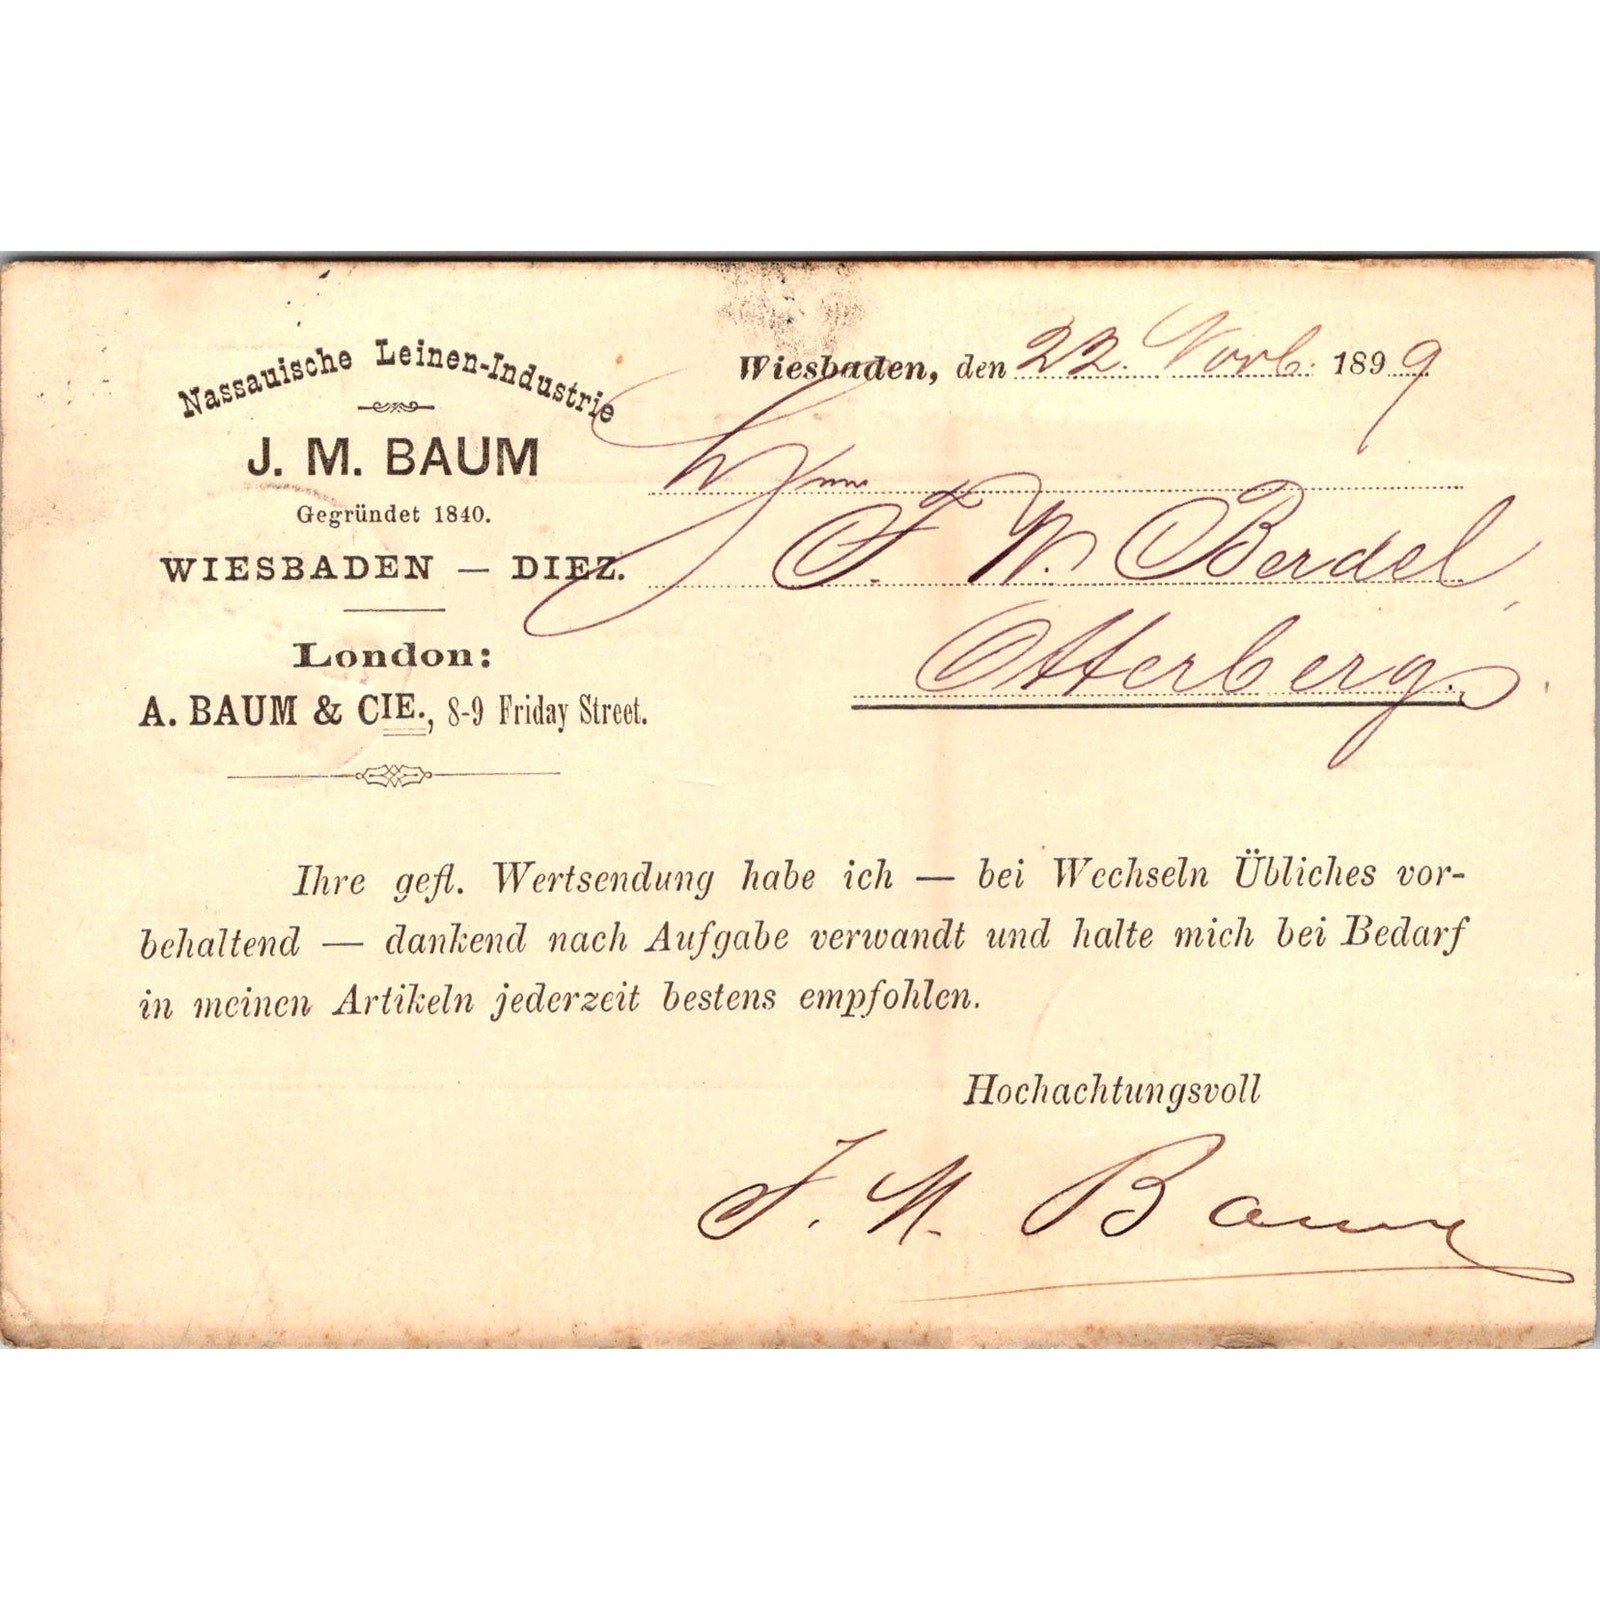 Nassauische Leinen-Industrie
J. M. BAUM
Gegründet 1840.
WIESBADEN — DIEZ.
London:
A. BAUM & CIE., 8-9 Friday Street.
Wiesbaden, den 22. Novb. 1899
F. W. Berdel,
Otterberg.
Ihre gefl. Wertsendung habe ich — bei Wechseln Übliches vor-
behaltend — dankend nach Aufgabe verwandt und halte mich bei Bedarf
in meinen Artikeln jederzeit bestens empfohlen.
Hochachtungsvoll
J. M. Baum